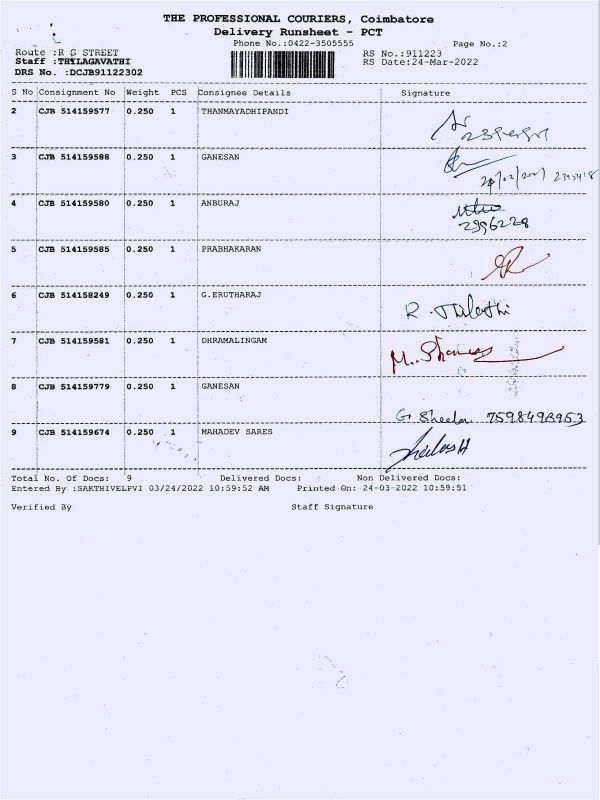 THE PROFESSIONAL COURIERS, Coimbatore
Delivery Runsheet - PCT
Phone No.:0422-3505555 Page No.:2
Route :R G STREET RS No.:911223
Staff :THILAGAVATHI RS Date:24-Mar-2022
DRS No. :DCJB91122302
S No Consignment No Weight PCS Consignee Details Signature
2 CJB 514159577 0.250 1 THANMAYADHIPANDI
3 CJB 514159588 0.250 1 GANESAN
4 CJB 514159580 0.250 1 ANBURAJ
2996228
5 CJB 514159585 0.250 1 PRABHAKARAN
6 CJB 514158249 0.250 1 G.ERUTHARAJ
R.
7 CJB 514159581 0.250 1 DHRAMALINGAM
M.
8 CJB 514159779 0.250 1 GANESAN
G. Sheela 7598498953
9 CJB 514159674 0.250 1 MAHADEV SARES
Total No. Of Docs: 9 Delivered Docs: Non Delivered Docs:
Entered By :SAKTHIVELPVI 03/24/2022 10:59:52 AM Printed On: 24-03-2022 10:59:51
Verified By Staff Signature